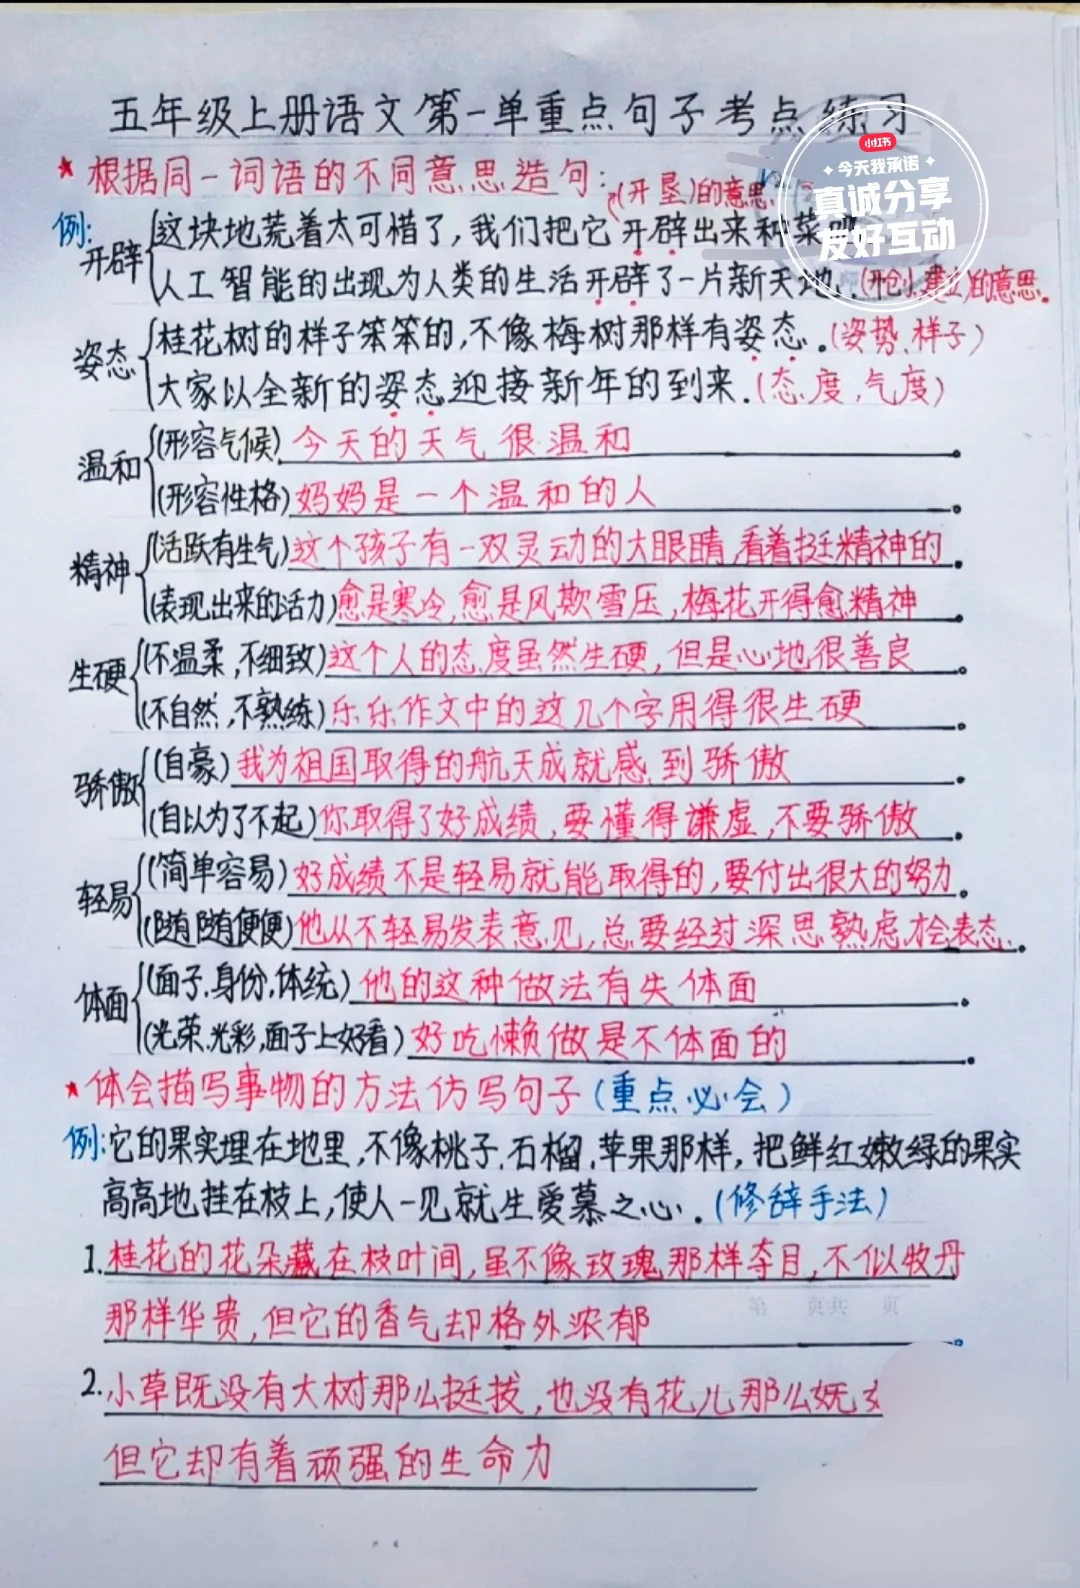 五年级上册语文第一单重点句子考点练习
小红书
今天我承诺
真诚分享
友好互动
★根据同一词语的不同意思造句:
(开垦)的意思
例:
开辟
这块地荒着太可惜了,我们把它开辟出来种菜
人工智能的出现为人类的生活开辟了一片新天地.(开创,建立)的意思。
姿态
桂花树的样子笨笨的,不像梅树那样有姿态。(姿势、样子)
大家以全新的姿态迎接新年的到来.(态度,气度)
温和
(形容气候)今天的天气很温和。
(形容性格)妈妈是一个温和的人。
精神
(活跃有生气)这个孩子有一双灵动的大眼睛,看着挺精神的。
(表现出来的活力)愈是寒冷,愈是风欺雪压,梅花开得愈精神。
生硬
(不温柔,不细致)这个人的态度虽然生硬,但是心地很善良。
(不自然,不熟练)乐乐作文中的这几个字用得很生硬。
骄傲
(自豪)我为祖国取得的航天成就感到骄傲。
(自以为了不起)你取得了好成绩,要懂得谦虚,不要骄傲。
轻易
(简单容易)好成绩不是轻易就能取得的,要付出很大的努力。
(随随便便)他从不轻易发表意见,总要经过深思熟虑才会表态。
体面
(面子,身份,体统)他的这种做法有失体面。
(光荣,光彩,面子上好看)好吃懒做是不体面的。
★体会描写事物的方法仿写句子(重点必会)
例:它的果实埋在地里,不像桃子,石榴,苹果那样,把鲜红嫩绿的果实
高高地挂在枝上,使人一见就生爱慕之心。(修辞手法)
1.桂花的花朵藏在枝叶间,虽不像玫瑰那样夺目,不似牧丹
那样华贵,但它的香气却格外浓郁。
第 页共 页
2.小草既没有大树那么挺拔,也没有花儿那么妩
但它却有着顽强的生命力